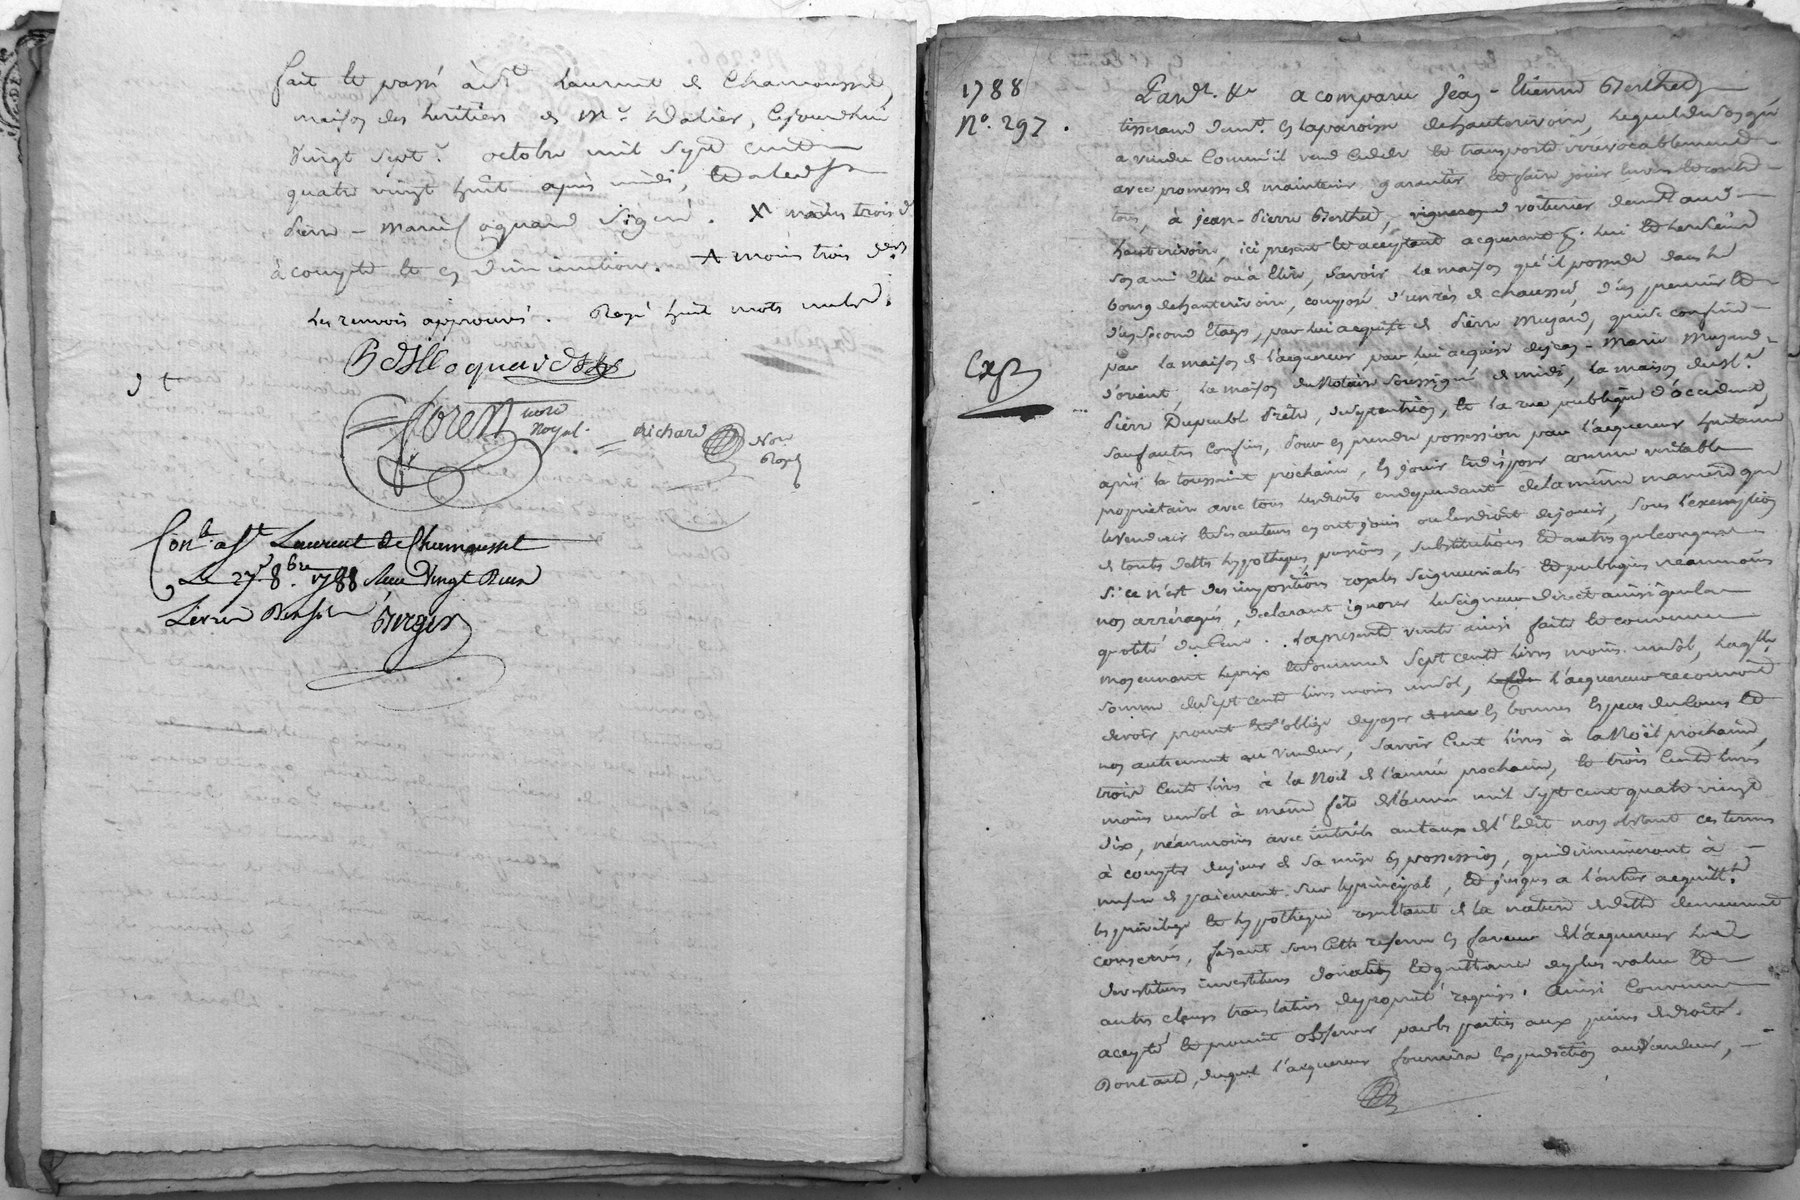 fait et passé à St Laurent de Chamousset,
maison des heritiers de Mr Dalier, cejourdhui
vingt sept octobre mil sept cent
quatre vingt huit après midi,
Pierre - Marie Coquard signé. X moins trois d
à compte et en diminution. X moins trois den
Les renvois approuvés. Rayé huit mots nuls.
Coquard
Loren notre
Royal. Richard Nore
Royal
Conlé à St Laurent de Chamousset
Le 27 8bre 1788 Reçu vingt
1788
No. 297.
Pardt. &c a comparu Jean - Etienne Berthet
tisserand demt. en la paroisse de hauterivoire, lequel de son gré
a vendu comme il vend cede et transporte irrévocablement
avec promesses de maintenir, garantir et faire jouir envers et contre
tous, à Jean - Pierre Berthet, voiturier demt aud
hauterivoire, ici présent et aceptant acquerant pr. lui et les siens
son ami élu ou à élire, savoir la maison qu'il possede dans le
bourg de hauterivoire, composé d'un rès de chaussé, d'un premier et
d'un second étages, par lui acquise de Pierre Mujard, qui se confine
par la maison de l'acquereur par lui acquise de Jean - Marie Mujard
Exp
d'orient, la maison du Notaire soussigné de midi, la maison de sr.
Pierre Dupeuble Prêtre, de septentrion, et la rue publique d'occident,
sauf autres confins, pour en prendre possession par l'acquereur
après la toussaint prochaine, en jouir et disposer comme véritable
proprietaire avec tous les droits en dependant de la même manière que
le vendeur et ses auteurs en ont joui ou eu droit de jouir, sous l'exemption
de touts dettes hypotheques, pensions, substitutions et autres quelconques
si ce n'est des impositions royales seigneuriales et publiques neanmoins
non arréragés, declarant ignorer le seigneur direct ainsi que la
quotité du cens. La presente vente ainsi faite et convenue
moyennant le prix et somme de sept cents livres moins un sol, laqlle
somme de sept cents livres moins un sol, l'acquereur reconnoit
devoir promet et s'oblige de payer en bonnes especes de cours et
non autrement au vendeur, savoir cent livres à la Noël prochaine,
trois cents livres à la Noël de l'année prochaine, et trois cents livres
moins un sol à même fête de l'année mil sept cent quatre vingt
dix, néanmoins avec intérêts au taux de l'Edit nonobstant ces termes
à compter du jour de sa mise en possession, qui diminueront à
mesure de paiement sur le principal, et jusques a l'entier acquittt
les privilege et hypotheque resultant de la nature de dette demeurent
conservés, faisant sous cette reserve en faveur de l'acquereur
devestiture investiture donation et quittance de plus value et
autres clauses translatives de propriété requises. Ainsi convenu
acepté et promit observer par les parties aux peines de droit.
Dont acte, duquel l'acquereur fournira expedition au vendeur,